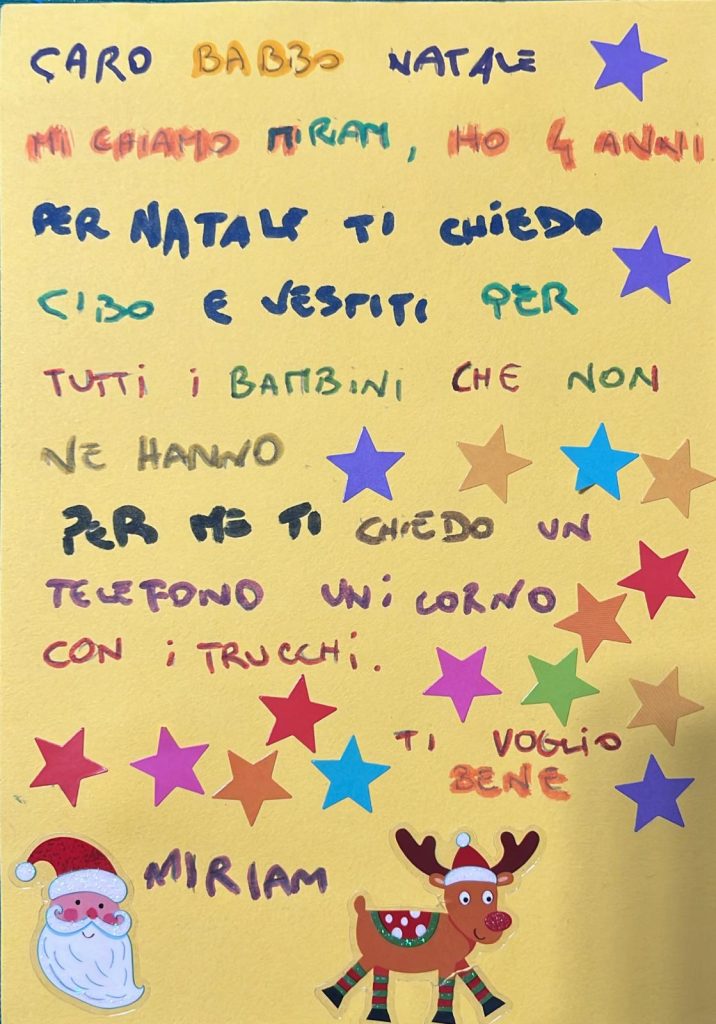 CARO BABBO NATALE
MI CHIAMO MIRIAM, HO 4 ANNI
PER NATALE TI CHIEDO
CIBO E VESTITI PER
TUTTI I BAMBINI CHE NON
NE HANNO
PER ME TI CHIEDO UN
TELEFONO UNICORNO
CON I TRUCCHI.
TI VOGLIO
BENE
MIRIAM